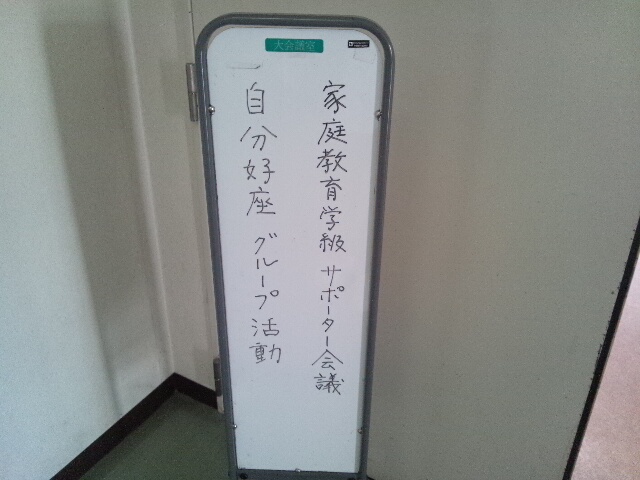 大会議室
家庭教育学級 サポーター会議
自分好座 グループ活動